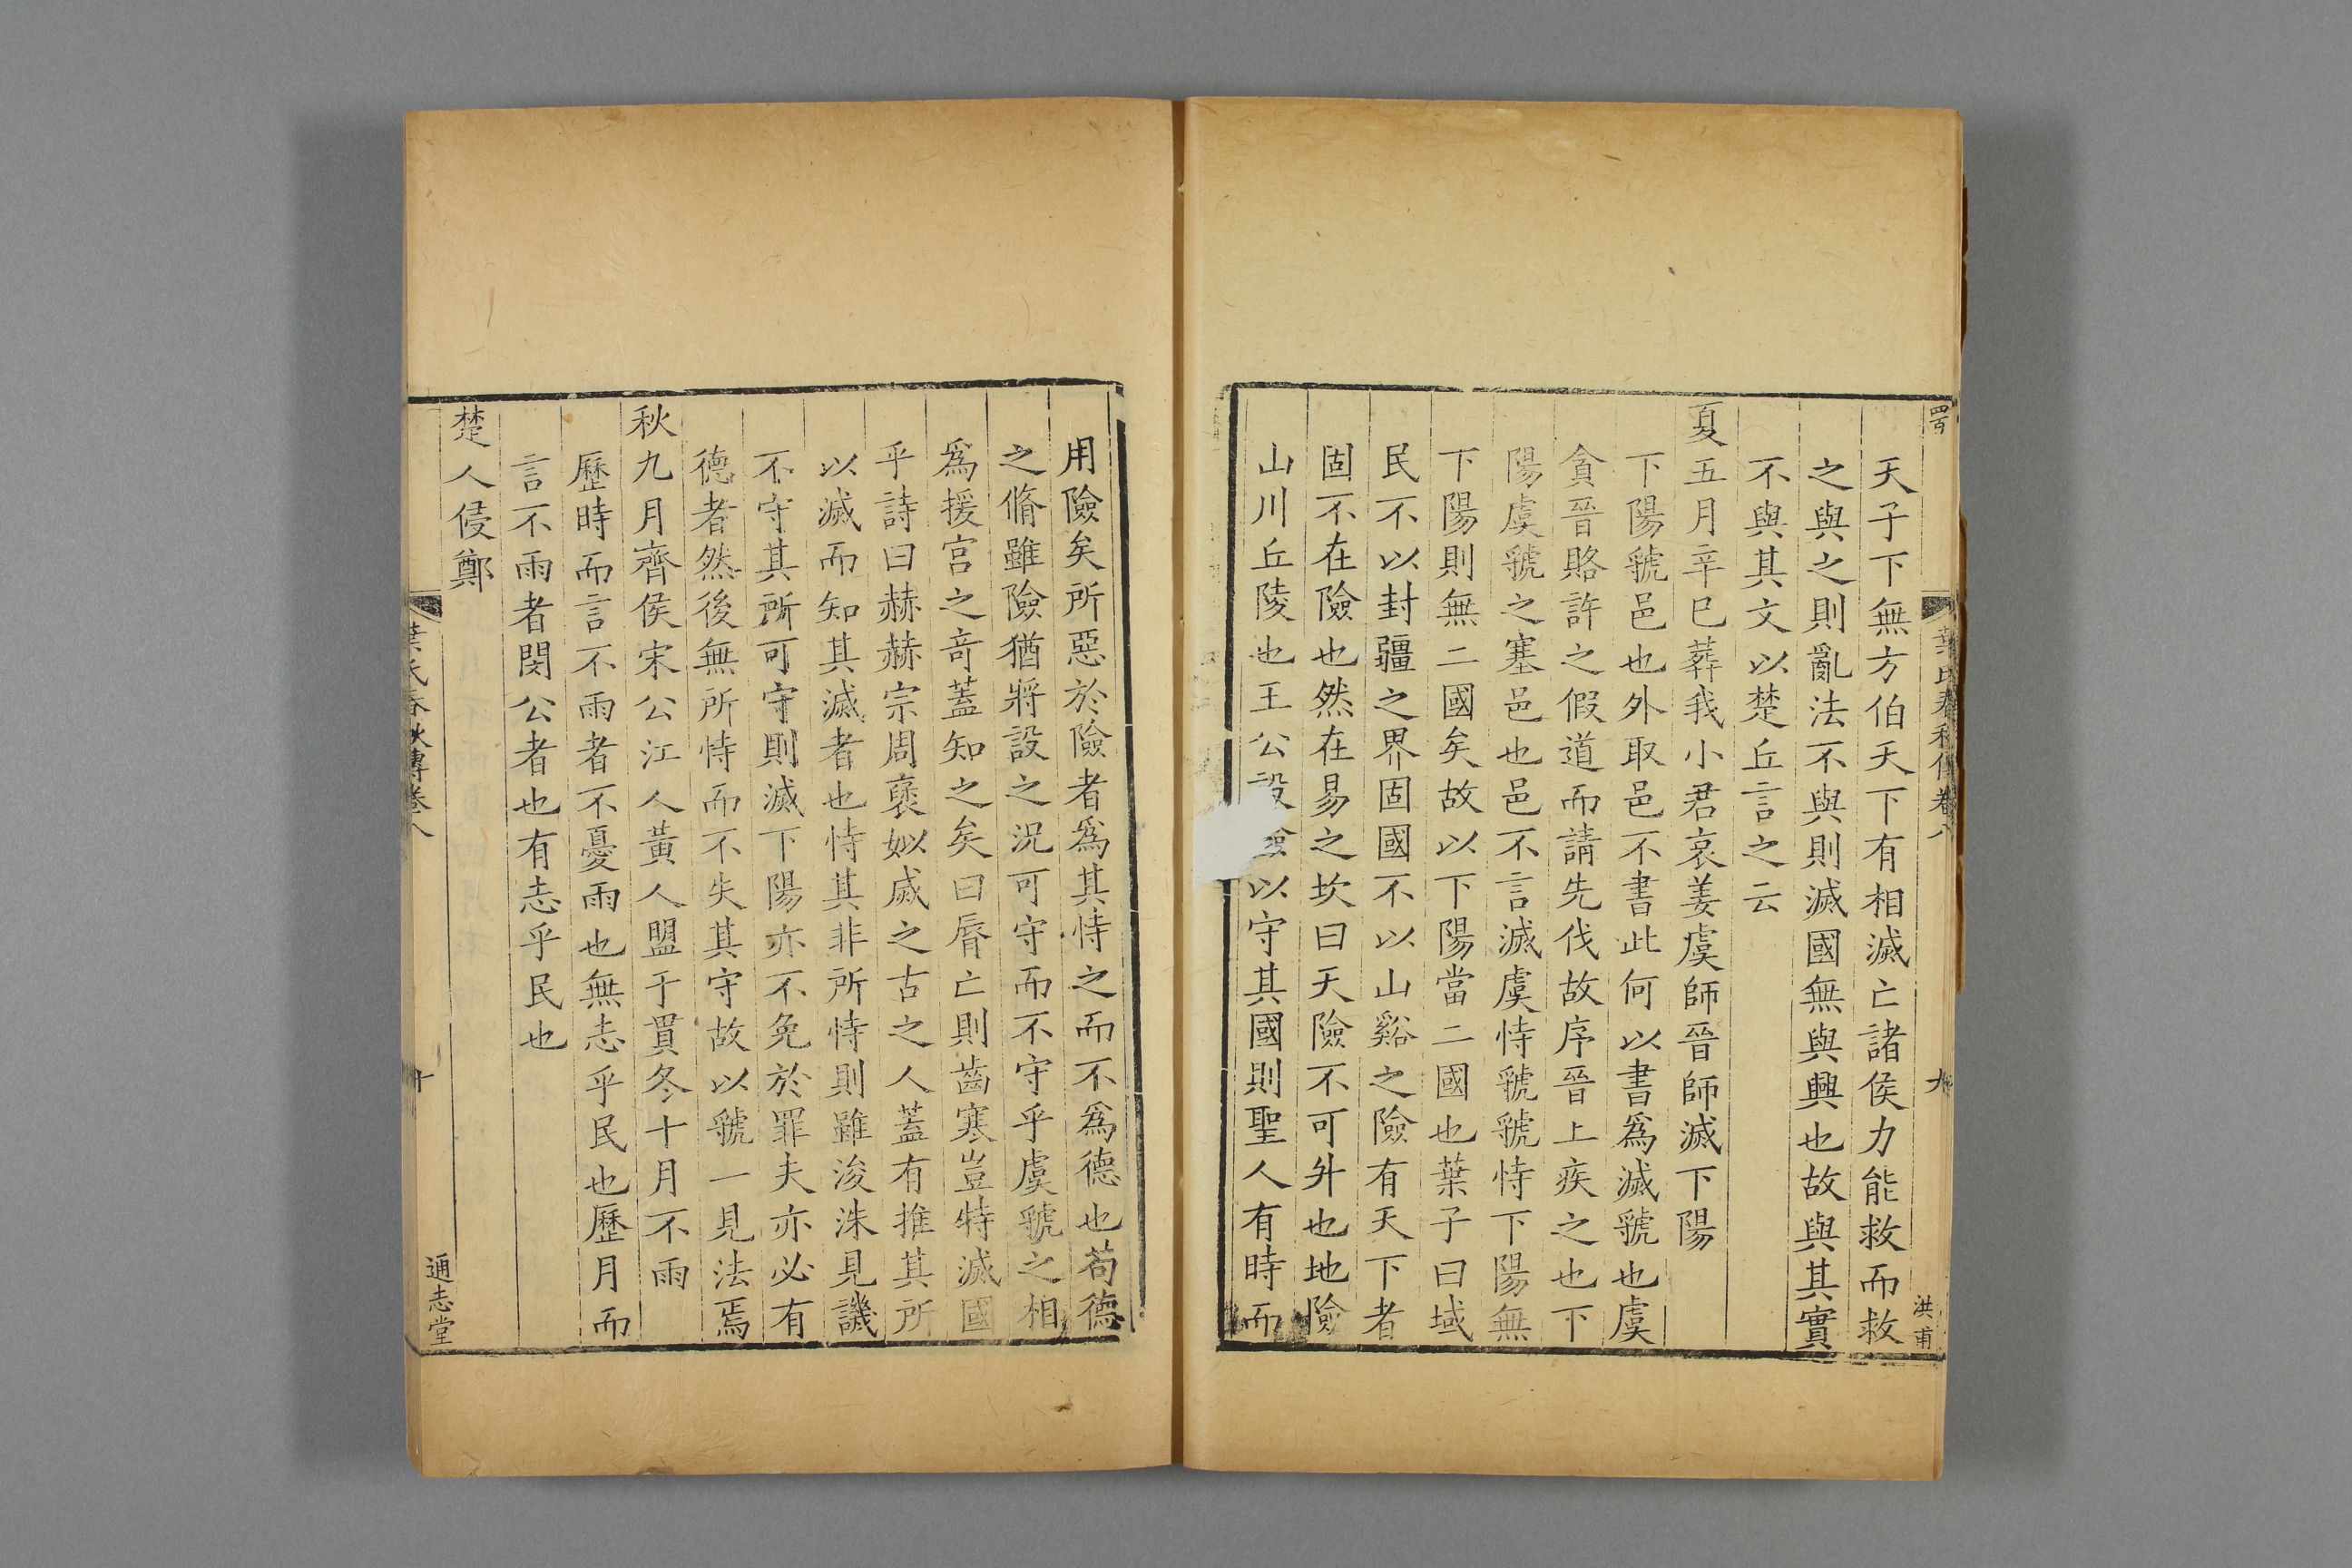 葉氏春秋傳卷八
九
洪甫
天子下無方伯天下有相滅亡諸侯力能救而救
之與之則亂法不與則滅國無與興也故與其實
不與其文以楚丘言之云
夏五月辛巳葬我小君哀姜虞師晉師滅下陽
下陽虢邑也外取邑不書此何以書爲滅虢也虞
貪晉賂許之假道而請先伐故序晉上疾之也下
陽虞虢之塞邑也邑不言滅虞恃虢虢恃下陽無
下陽則無二國矣故以下陽當二國也葉子曰域
民不以封疆之界固國不以山谿之險有天下者
固不在險也然在易之坎曰天險不可升也地險
山川丘陵也王公設險以守其國則聖人有時而
用險矣所惡於險者爲其恃之而不爲德也苟德
之脩雖險猶將設之況可守而不守乎虞虢之相
爲援宮之奇蓋知之矣曰脣亡則齒寒豈特滅國
乎詩曰赫赫宗周襃姒烕之古之人蓋有推其所
以滅而知其滅者也恃其非所恃則雖浚洙見譏
不守其所可守則滅下陽亦不免於罪夫亦必有
德者然後無所恃而不失其守故以虢一見法焉
秋九月齊侯宋公江人黃人盟于貫冬十月不雨
歷時而言不雨者不憂雨也無志乎民也歷月而
言不雨者閔公者也有志乎民也
楚人侵鄭
葉氏春秋傳卷八
十
通志堂